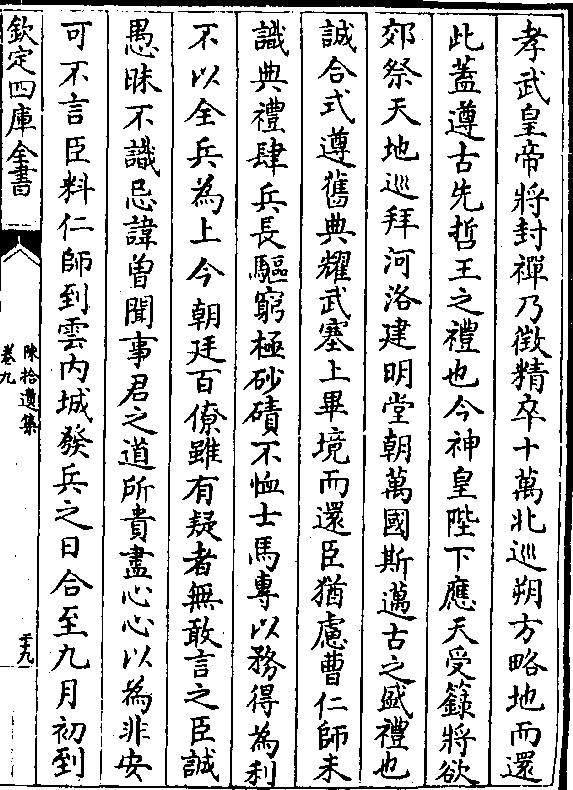 孝武皇帝將封禪乃徵精卒十萬北巡朔方略地而還
此蓋遵古先哲王之禮也今神皇陛下應天受籙將欲
郊祭天地巡拜河洛建明堂朝萬國斯邁古之盛禮也
誠合式遵舊典耀武塞上畢境而還臣猶慮曹仁師未
識典禮肆兵長驅窮極砂磧不恤士馬專以務得為利
不以全兵為上今朝廷百僚雖有疑者無敢言之臣誠
愚昧不識忌諱曽聞事君之道所貴盡心心以為非安
可不言臣料仁師到雲内城發兵之日合至九月初到
欽定四庫全書
陳拾遺集
卷九
十九